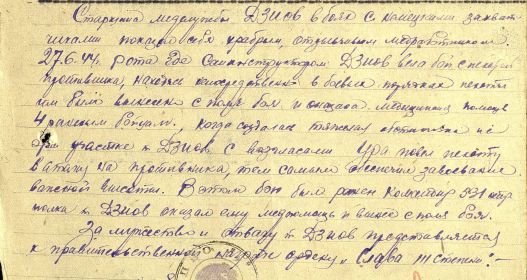 Старшина медслужбы Дзиов в боях с немецкими захват-
чиками показал себя храбрым, отзывчивым медработником.
27.6.44. рота где Санинструктором Дзиов вела бой с пехотой
противника, находясь непосредственно в боевых порядках пехоты
им был вынесен с поля боя и оказана медицинская помощь
4 раненым бойцам., когда создалась тяжелая обстановка на
участке т. Дзиов с возгласами Ура повел пехоту
в атаку на противника, тем самым обеспечил завоевание
важной высоты. В этом бою был ранен Комбат
полка т. Дзиов оказал ему медпомощь и вынес с поля боя.
За мужество и отвагу т. Дзиов представляется
к правительственной награде ордену „Слава III степени".-